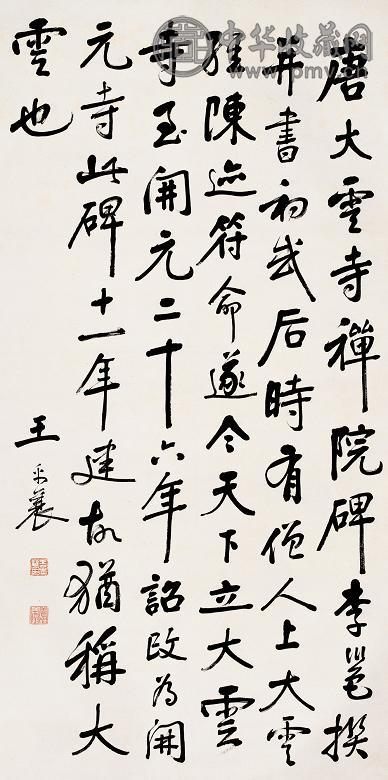 中华收藏网
唐大雲寺禪院碑李邕撰
并書初武后時有僧人上大雲
經陳述符命遂令天下立大雲
寺至開元二十六年詔改為開
元寺此碑十一年建故猶稱大
雲也
王